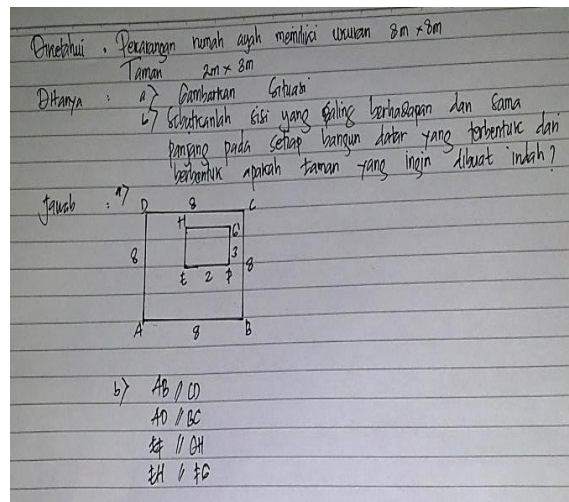 Diketahui : Pekarangan rumah ayah memiliki ukuran 8m x 8m
Taman 2m x 3m
Ditanya : a> Gambarkan Situasi
b> Sebutkanlah sisi yang saling berhadapan dan sama
panjang pada setiap bangun datar yang terbentuk dan
berbentuk apakah taman yang ingin dibuat indah?
Jawab : a>
D 8 C
H G
8 3 8
E 2 F
A 8 B
b> AB // CD
AD // BC
EF // GH
EH // FG